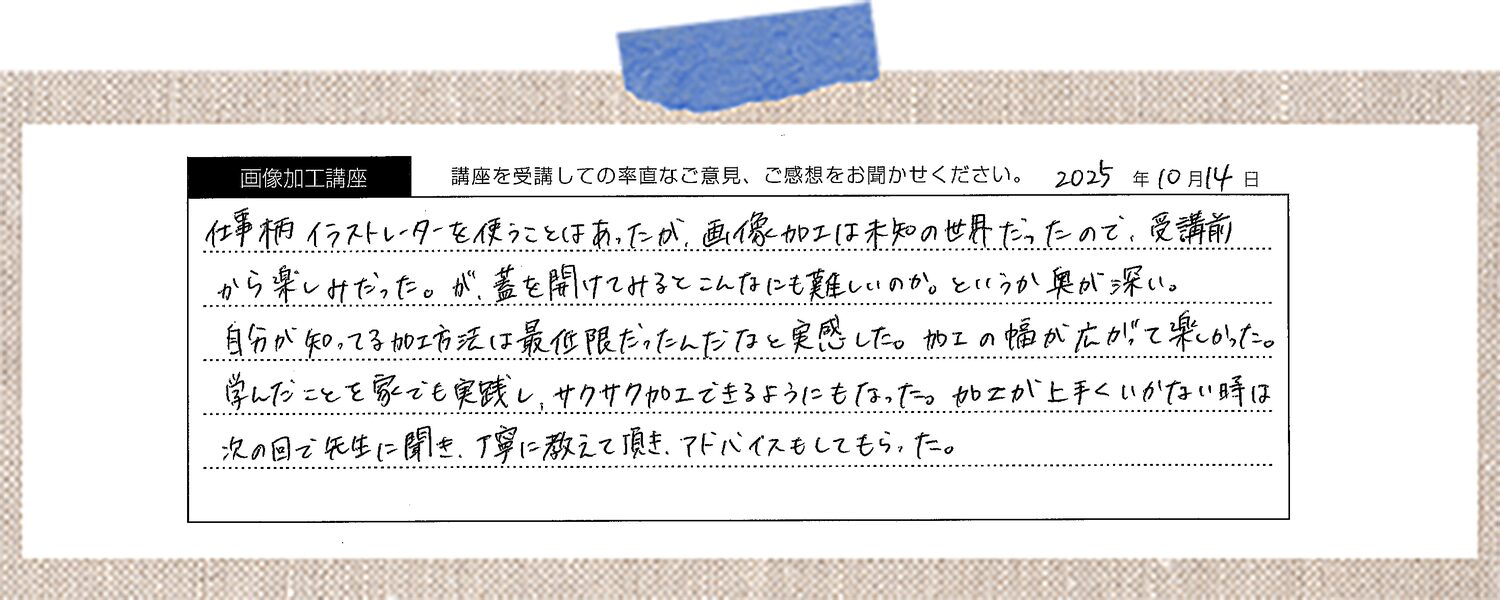 画像加工講座 講座を受講しての率直なご意見、ご感想をお聞かせください。 2025年10月14日
仕事柄イラストレーターを使うことはあったが、画像加工は未知の世界だったので、受講前
から楽しみだった。が、蓋を開けてみるとこんなにも難しいのか。というか奥が深い。
自分が知ってる加工方法は最低限だったんだなと実感した。加工の幅が広がって楽しかった。
学んだことを家でも実践し、サクサク加工できるようにもなった。加工が上手くいかない時は
次の回で先生に聞き、丁寧に教えて頂き、アドバイスもしてもらった。